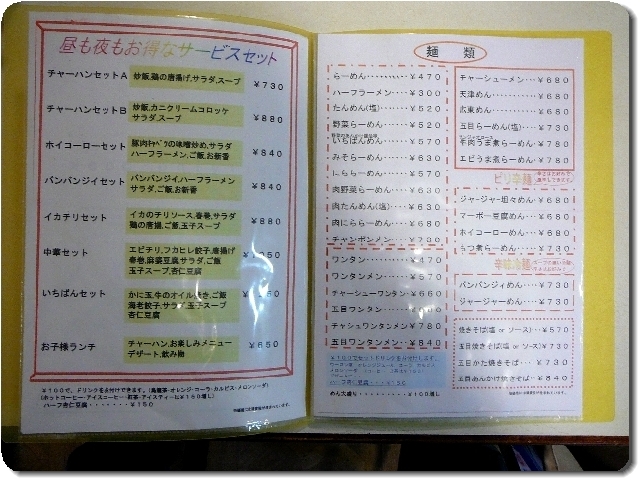 昼も夜もお得なサービスセット
チャーハンセットA 炒飯,鶏の唐揚げ,サラダ,スープ ¥730
チャーハンセットB 炒飯,カニクリームコロッケ
サラダ,スープ ¥880
ホイコーローセット 豚肉キャベツの味噌炒め,サラダ
ハーフラーメン,ご飯,お新香 ¥840
バンバンジイセット バンバンジイ,ハーフラーメン
サラダ,ご飯,お新香 ¥840
イカチリセット イカのチリソース,春巻,サラダ
鶏の唐揚,ご飯,玉子スープ ¥880
中華セット エビチリ,フカヒレ餃子,唐揚げ
春巻,麻婆豆腐サラダ,ご飯
玉子スープ,杏仁豆腐
いちばんセット かに玉,牛のオイル焼き,ご飯
海老餃子,サラダ,玉子スープ
杏仁豆腐
お子様ランチ チャーハン,お楽しみメニュー
デザート,飲み物 ¥650
¥100で、ドリンクを付けできます。(烏龍茶・オレンジ・コーラ・カルピス・メロンソーダ)
(ホットコーヒー・アイスコーヒー・紅茶・アイスティーは¥150増し)
ハーフ杏仁豆腐-------¥150
麺類
らーめん・・・・・・¥470
ハーフラーメン・・・¥300
たんめん(塩)・・・・¥520
野菜らーめん・・・・¥520
いちばんめん・・・・¥570
みそらーめん・・・・¥630
にららーめん・・・・¥570
肉野菜らーめん・・・¥630
肉たんめん(塩)・・・¥630
肉にららーめん・・・¥680
チャンポンメン・・・¥700
ワンタン・・・・・・¥470
ワンタンメン・・・・¥570
チャーシューワンタン・¥660
五目ワンタン・・・・¥
チャシュウワンタンメン・¥780
五目ワンタンメン・・・¥840
めん大盛り・・・・・・・・¥100増し
チャーシューメン・・・¥680
天津めん・・・・・・・¥680
広東めん・・・・・・・¥680
五目らーめん(塩)・・・¥730
牛肉うま煮らーめん・・¥780
エビうま煮らーめん・・¥780
ピリ辛麺
ジャージャー坦々めん・¥680
マーボー豆腐めん・・・¥680
ホイコーローめん・・・¥680
もつ煮らーめん・・・・¥730
辛味冷麺
バンバンジィめん・・・¥730
ジャージャーめん・・・¥730
焼きそば(塩 or ソース)・・¥570
五目焼きそば(塩 or ソース)・¥730
五目かた焼きそば・・・¥730
五目あんかけ焼きそば・・¥840